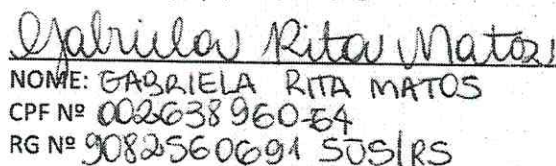 Gabriela Rita Matos
NOME: GABRIELA RITA MATOS
CPF Nº 002638960-54
RG Nº 9082560691 SJS/RS